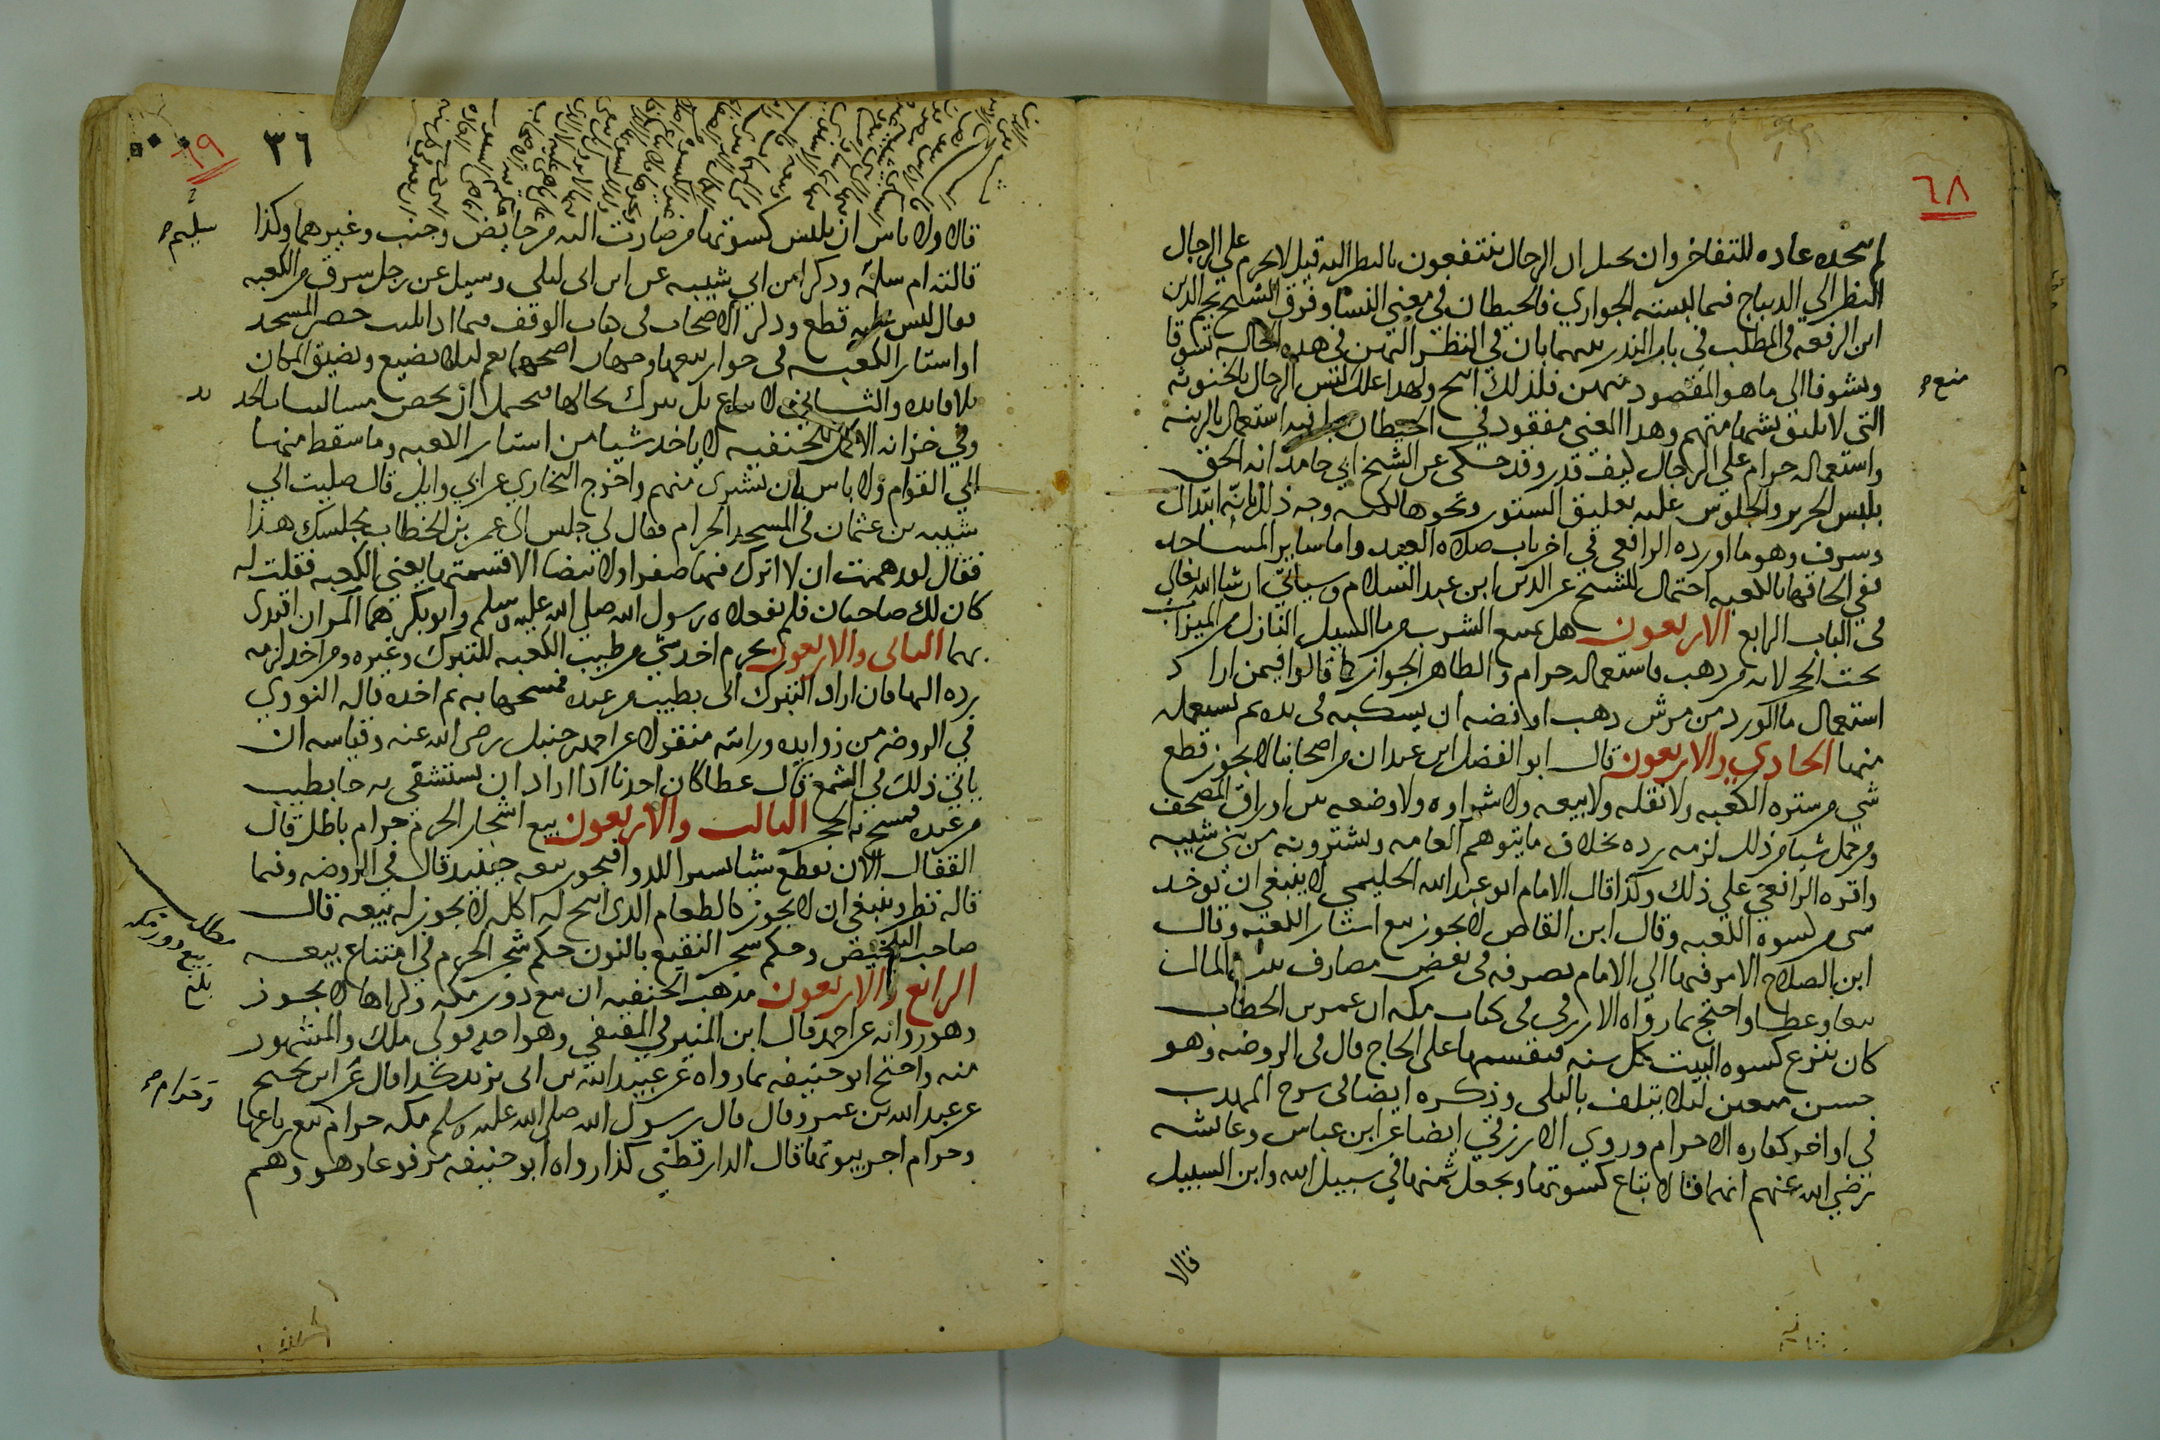 ٦٨
لم يتخذه عاده للتفاخر وان تخيل ان الرجال ينتفعون بالنظر اليه قيل لا يحرم على الرجال
النظر الي الديباج فيما البسته الجواري فالحيطان في معني النسا وفرق الشيخ نجم الدين
ابن الرفعه في المطلب في باب النذر بينهما بان في النظر اليهن في هذه الحاله تشوقا
وتشوفا الى ما هو المقصود منهن فلذلك ابيح ولهذا علل لبس الرجال بالخنوثه
التي لا تليق بشهامتهم وهذا المعنى مفقود في الحيطان استعمال بالزينه
واستعماله حرام علي الرجال كيف قدر وقد حكى عن الشيخ ابي حامد انه الحق
بلبس الحرير والجلوس عليه تعليق الستور ونحوها وجه ذلك بانه ابتذال
وسرف وهو ما اورده الرافعي في اخر باب صلاه العيد واما ساير المساجد
ففي الحاقها بالكعبه احتمال للشيخ عز الدين ابن عبد السلام وسياتي ان شا الله تعالي
في الباب الرابع الاربعون هل يمتنع الشرب من ما السيل النازل من الميزاب
تحت الحجر لانه من ذهب فاستعماله حرام والظاهر الجواز كما قالوا فيمن اراد
استعمال ما الورد من مرش ذهب او فضه ان يسكبه في يده ثم يستعمله
منها الحادي والاربعون قال ابو الفضل ابن عبدان من اصحابنا لا يجوز قطع
شي من ستره الكعبه ولا نقله ولا بيعه ولا شراوه ولا وضعه بين اوراق المصحف
ومن حمل شيا من ذلك لزمه رده بخلاف ما يتوهم العامه ويشترونه من بني شيبه
واقره الرافعي علي ذلك وكذا قال الامام ابو عبد الله الحليمي لا ينبغي ان يوخذ
شي من كسوه الكعبه وقال ابن القاص لا يجوز بيع استار الكعبه وقال
ابن الصلاح الامر فيها الي الامام يصرفه في بعض مصارف بيت المال
بيعا وعطا واحتج بما رواه الازرقي في كتاب مكه ان عمر بن الخطاب
كان ينزع كسوه البيت كل سنه فيقسمها على الحاج قال في الروضه وهو
حسن متعين ليلا يتلف بالبلى وذكره ايضا في شرح المهذب
في اواخر كفاره الاحرام وروي الازرقي ايضا عن ابن عباس وعائشه
رضي الله عنهم انهما قالا تباع كسوتها ويجعل ثمنها في سبيل الله وابن السبيل
قالا
منع
٦٩
٣٦
قالا ولا باس ان يلبس كسوتها من صارت اليه من حايض وجنب وغيرهما وكذا
قالته ام سلمة وذكر ابن ابي شيبه عن ابن ابي ليلى وسيل عن رجل سرق من الكعبه
فقال ليس عليه قطع وذكر الاصحاب في باب الوقف فيما اذا بليت حصر المسجد
او استار الكعبه في جواز بيعها وجهان اصحهما نعم ليلا تضيع وتضيق المكان
بلا فايده والثاني لا تباع بل تترك بحالها فيحتمل ان يخص مسالتنا
وفي خزانه الاكمل للحنفيه لا ياخذ شيا من استار الكعبه وما سقط منها
الي القوام ولا باس بان يشتري منهم واخرج البخاري عن ابي وايل قال صليت الي
شيبه بن عثمان في المسجد الحرام فقال لي جلس الي عمر بن الخطاب مجلسك هذا
فقال لقد هممت ان لا اترك فيها صفرا ولا بيضا الا قسمتها يعني الكعبه فقلت له
كان لك صاحبان فلم يفعلاه رسول الله صلى الله عليه وسلم وابو بكر هما المران اقتدى
بهما الثاني والاربعون يحرم اخذ شي من طيب الكعبه للتبرك وغيره ومن اخذ لزمه
رده اليها فان اراد التبرك اتى بطيب من عنده فمسحها به ثم اخذه قاله النووي
في الروضه من زوايده ورايته منقولا عن احمد بن حنبل رضي الله عنه وقياسه ان
ياتي ذلك في الشمع قال عطا كان احدنا اذا اراد ان يستشفي به جا بطيب
من عنده فمسح به الحجر الثالث والاربعون بيع اشجار الحرم حرام باطل قال
القفال الا ان يقطع شيا يسيرا للدوا فيجوز بيعه حينيذ قال في الروضه وفيما
قاله نظر وينبغي ان لا يجوز كالطعام الذي ابيح له اكله لا يجوز له بيعه قال
صاحب التلخيص وحكم شجر النقيع بالنون حكم شجر الحرم في امتناع بيعه
الرابع والاربعون مذهب الحنفيه ان بيع دور مكه وكراها لا يجوز
وهو روايه عن احمد قال ابن المنير في المقتفي وهو احد قولي ملك والمشهور
منه واحتج ابو حنيفه بما رواه عن عبيد الله بن ابي يزيد كذا قال عن ابن نجيح
عن عبد الله بن عمرو قال قال رسول الله صلى الله عليه وسلم مكه حرام بيع رباعها
وحرام اجر بيوتها قال الدارقطني كذا رواه ابو حنيفه مرفوعا وهو وهم
مطلب
بيع دور مكه
بلغ
وحرام